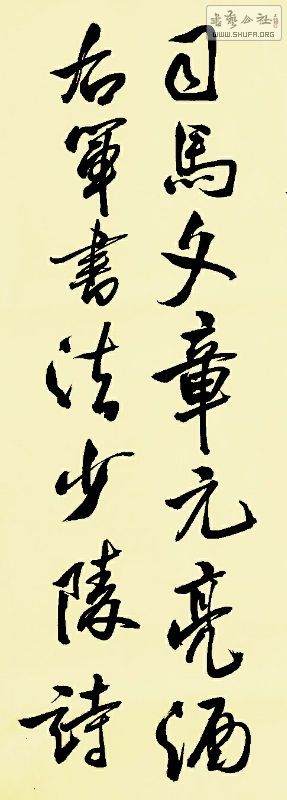 司馬文章元亮酒
右軍書法少陵詩
書藝公社
WWW.SHUFA.ORG